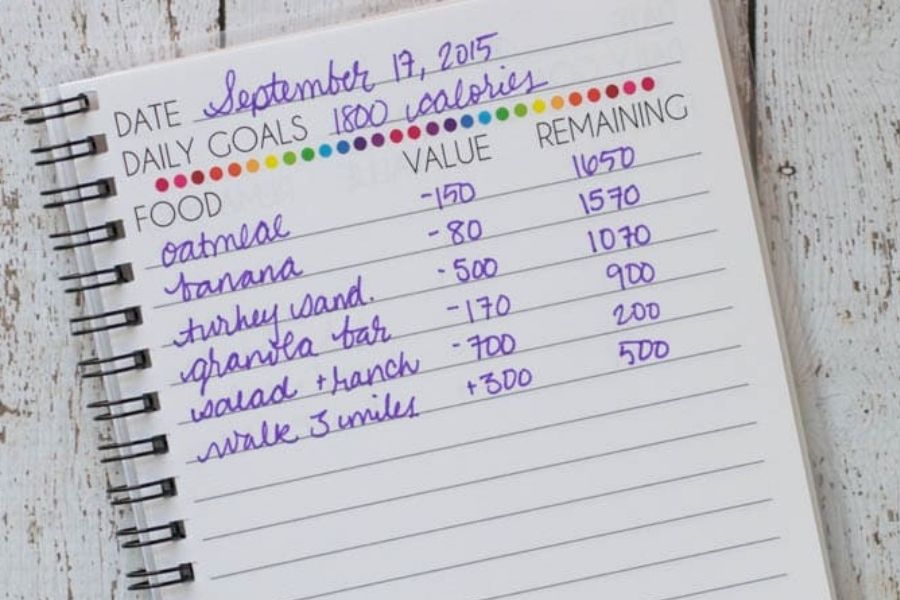 DATE September 17, 2015
DAILY GOALS 1800 calories
FOOD VALUE REMAINING
oatmeal -150 1650
banana -80 1570
turkey sand. -500 1070
granola bar -170 900
salad + ranch -700 200
walk 3 miles +300 500